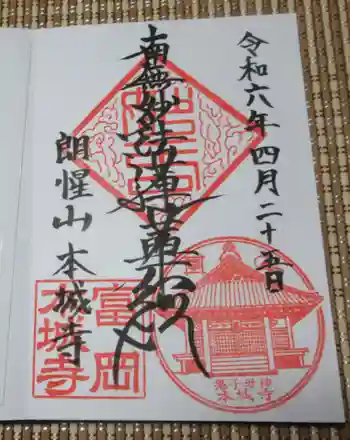 令和六年四月二十五日
南無妙法蓮華経
朗惺山本城寺
冨岡
本城寺
本城寺